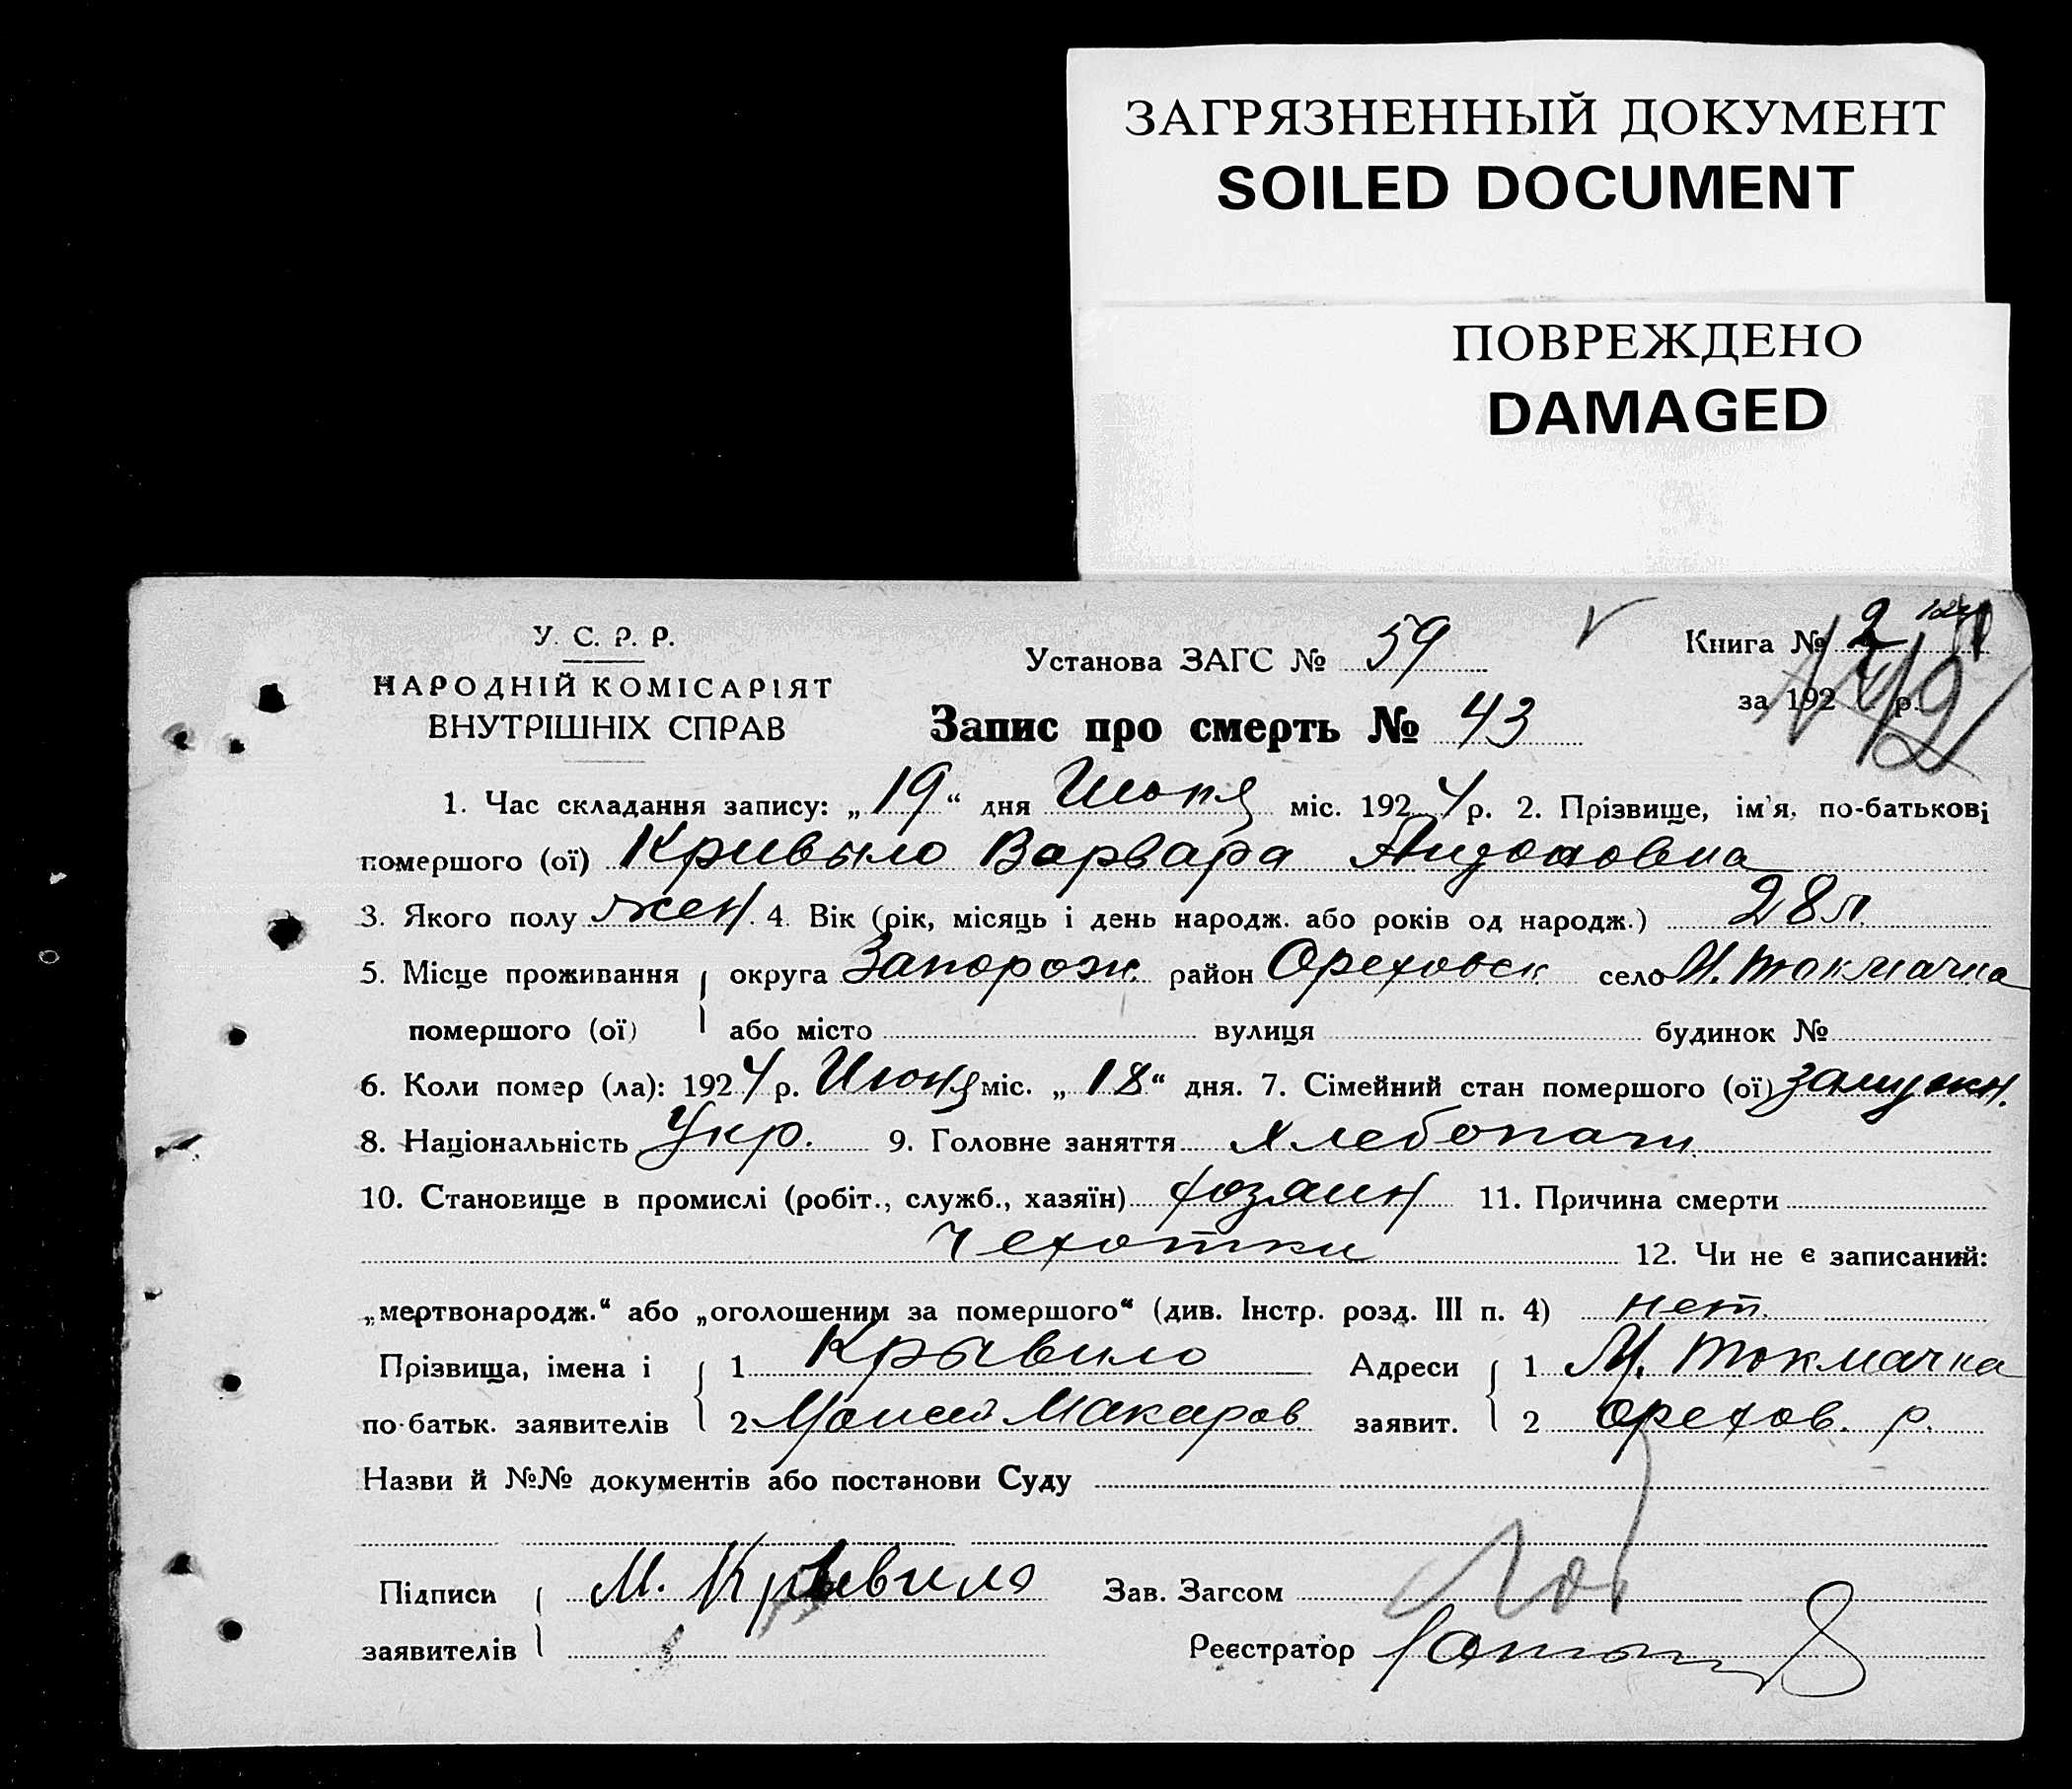 ЗАГРЯЗНЕННЫЙ ДОКУМЕНТ
SOILED DOCUMENT
ПОВРЕЖДЕНО
DAMAGED
У. С. Р. Р.
НАРОДНІЙ КОМІСАРІЯТ
ВНУТРІШНІХ СПРАВ
Установа ЗАГС № 59
Книга № 2
за 1924 р.
Запис про смерть № 43
1. Час складання запису: „19“ дня Июня міс. 1924 р. 2. Прізвище, ім'я, по-батькові
помершого (ої) Кривыло Варвара
3. Якого полу жен. 4. Вік (рік, місяць і день народж. або років од народж.) 28 л.
5. Місце проживання округа Запорож. район Ореховск село М. Токмачка
помершого (ої) або місто вулиця будинок №
6. Коли помер (ла): 1924 р. Июня міс. „18“ дня. 7. Сімейний стан помершого (ої) замужн.
8. Національність Укр. 9. Головне заняття Хлебопаш.
10. Становище в промислі (робіт., служб., хазяїн) хозяин 11. Причина смерти
Чехотки 12. Чи не є записаний:
„мертвонародж.“ або „оголошеним за помершого“ (див. Інстр. розд. III п. 4) нет.
Прізвища, імена і 1 Крывило Адреси 1 М. Токмачка
по-батьк. заявителів 2 Моисей Макаров. заявит. 2 Орехов. р.
Назви й №№ документів або постанови Суду
Підписи М. Крывило Зав. Загсом
заявителів Реєстратор